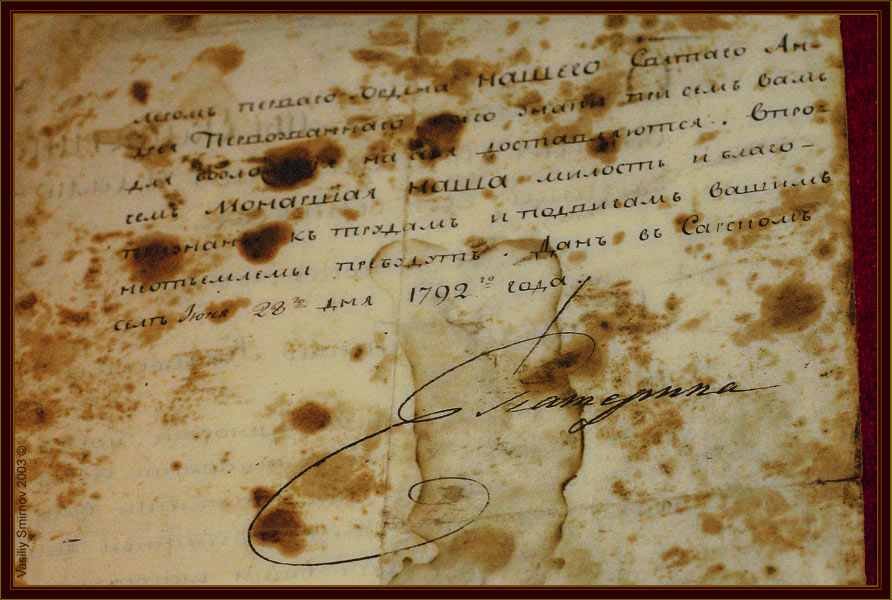 леромъ перваго Ордена нашего Святаго Ан-
дрея Первозваннаго коего знаки при семъ вамъ
для возложенія на себя доставляются. Впро-
чемъ Монаршая наша милость и благо-
признаніе къ трудамъ и подвигамъ вашимъ
неотъемлемы пребудутъ. Данъ въ Сарскомъ
селѣ Іюня 28го дня 1792го года.
Екатерина
Vasiliy Smirnov 2003 ©